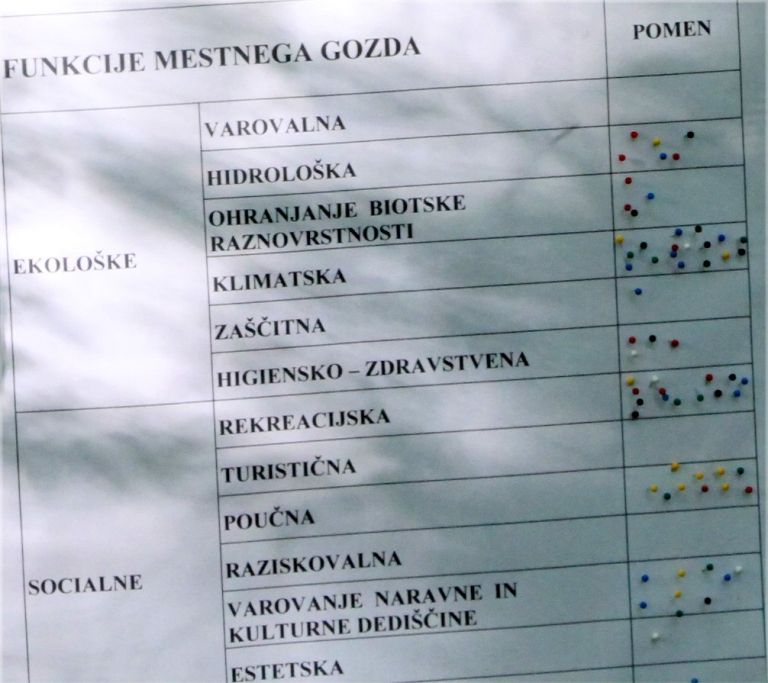 FUNKCIJE MESTNEGA GOZDA
POMEN
EKOLOŠKE
VAROVALNA
HIDROLOŠKA
OHRANJANJE BIOTSKE
RAZNOVRSTNOSTI
KLIMATSKA
ZAŠČITNA
HIGIENSKO – ZDRAVSTVENA
SOCIALNE
REKREACIJSKA
TURISTIČNA
POUČNA
RAZISKOVALNA
VAROVANJE NARAVNE IN
KULTURNE DEDIŠČINE
ESTETSKA